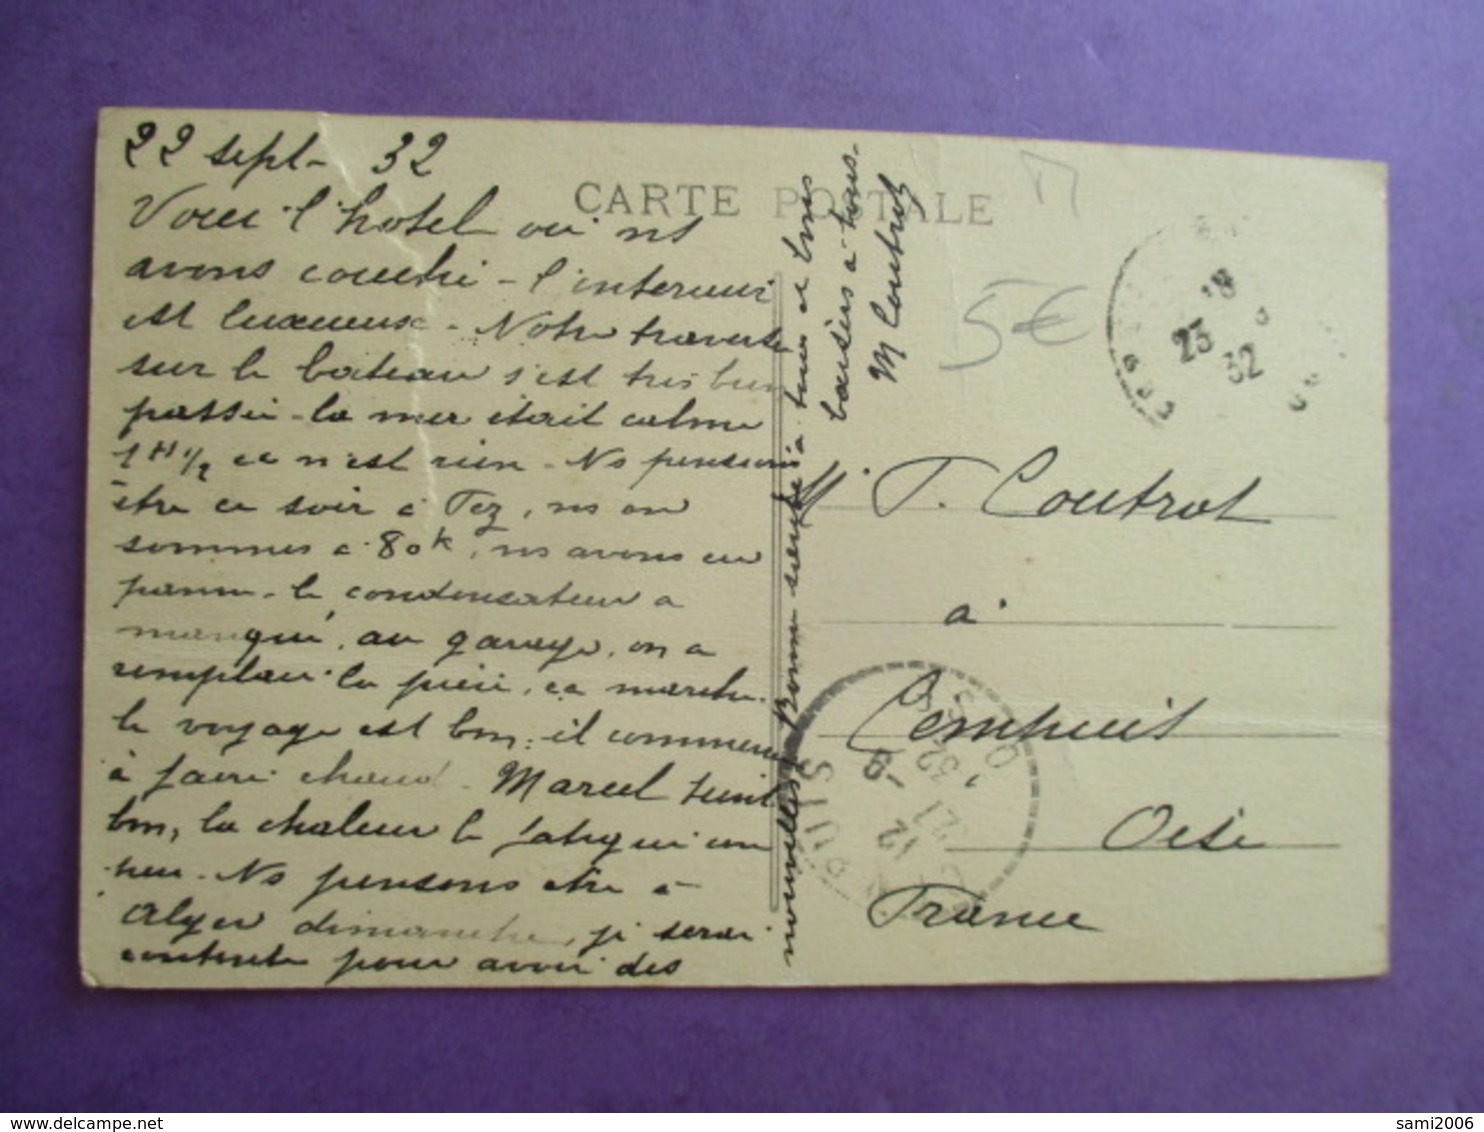 CARTE POSTALE
22 sept- 32
Voici l'hotel où ns
avons couché - l'interieur
est luxueuse - Notre traversée
sur le bateau s'est très bien
passée - la mer était calme
1H1/2 ce n'est rien - Ns pensions
être ce soir à Fez, ns en
sommes à 80k, ns avons eu
panne - le condensateur a
manqué, au garage, on a
remplacé la pièce, ça marche.
le voyage est bon, il commence
à faire chaud - Marcel tient
bon, la chaleur le fatigue un
peu - Ns pensons être à
Alger dimanche, je serai
contente pour avoir des
nouvelles Bonne santé à tous et bons
baisers à tous -
M Coutrot
5€
23
32
M. T. Coutrot
à
Cempuis
Oise
France
12
'32
OISE